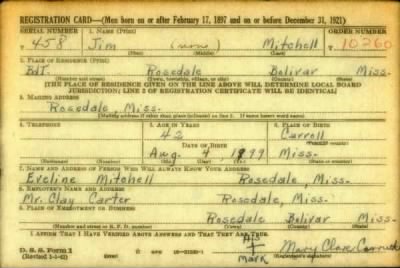 REGISTRATION CARD—(Men born on or after February 17, 1897 and on or before December 31, 1921)
SERIAL NUMBER 1. NAME (Print) ORDER NUMBER
T 458 Jim (none) Mitchell T 10260
(First) (Middle) (Last)
2. PLACE OF RESIDENCE (Print)
Rosedale Bolivar Miss.
(Number and street) (Town, township, village, or city) (County) (State)
[THE PLACE OF RESIDENCE GIVEN ON THE LINE ABOVE WILL DETERMINE LOCAL BOARD
JURISDICTION; LINE 2 OF REGISTRATION CERTIFICATE WILL BE IDENTICAL]
3. MAILING ADDRESS
Rosedale, Miss.
[Mailing address if other than place indicated on line 2. If same insert word same]
4. TELEPHONE 5. AGE IN YEARS 6. PLACE OF BIRTH
42 Carroll
DATE OF BIRTH (Town or county)
Aug. 4 1899 Miss.
(Exchange) (Number) (Mo.) (Day) (Yr.) (State or country)
7. NAME AND ADDRESS OF PERSON WHO WILL ALWAYS KNOW YOUR ADDRESS
Eveline Mitchell Rosedale, Miss.
8. EMPLOYER'S NAME AND ADDRESS
Mr. Clay Carter Rosedale, Miss.
9. PLACE OF EMPLOYMENT OR BUSINESS
Rosedale Bolivar Miss.
(Number and street or R. F. D. number) (Town) (County) (State)
I AFFIRM THAT I HAVE VERIFIED ABOVE ANSWERS AND THAT THEY ARE TRUE.
D. S. S. Form 1 His
(Revised 1-1-42) Mark Mary Clare